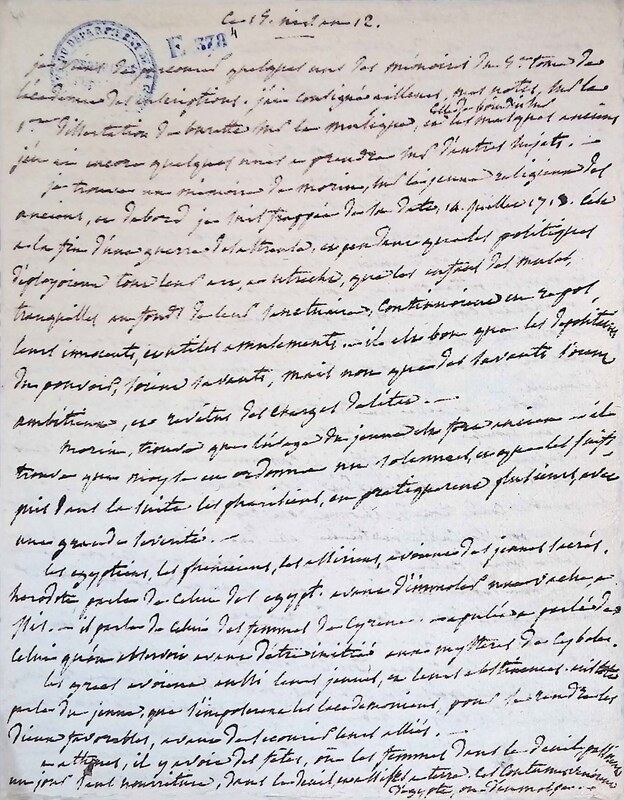 Ce 19. niv. an 12.
E 378 4
je viens de parcourir quelques uns des mémoires du 4.e tome de
l'académie des inscriptions. j'ai consigné ailleurs, mes notes, sur la
1.ere dissertation de burette sur la musique, et les musiques anciens
j'en ai encore quelques unes a prendre sur d'autres sujets. —
je trouve un mémoire de morin, sur le jeune religieux des
anciens, et d'abord je suis frappée de la date, 14. juillet 1713. c'est
a la fin d'une guerre désastreuse, et pendant que les politiques
déployoient tout leur art, a utrecht, que les enfans des muses,
tranquilles au fond de leur sanctuaire, continuoient en repos,
leurs innocents, et utiles amusements. — il est bon que les dépositaires
du pouvoir, soient savants, mais non que des savants soient
ambitieux, et revêtus des charges de l'état. —
morin, trouve que l'usage du jeune est fort ancien — il
trouve que moyse en ordonna un solennel, et que les juifs,
puis dans la suite les pharisiens, en pratiquerent plusieurs, avec
une grande sévérité. —
les egyptiens, les phéniciens, les assiriens, avoient des jeunes sacrés.
herodote parle de celui des egypt. avant d'immoler une vache a
isis. — il parle de celui des femmes de Cyrene. — apulée a parlé de
celui qu'on observoit avant d'être initié aux mystères de Cybele.
les grecs avoient aussi leurs jeunes, et leurs abstinences.
parle du jeune, que s'imposerent les lacedemoniens, pour se rendre les
dieux favorables, avant de secourir leurs alliés. —
a athenes, il y avoit des fêtes, où les femmes dans le deuil passoient
un jour sans nourriture, dans le deuil, et assises a terre. ces coutumes venoient
d'egypte, ou